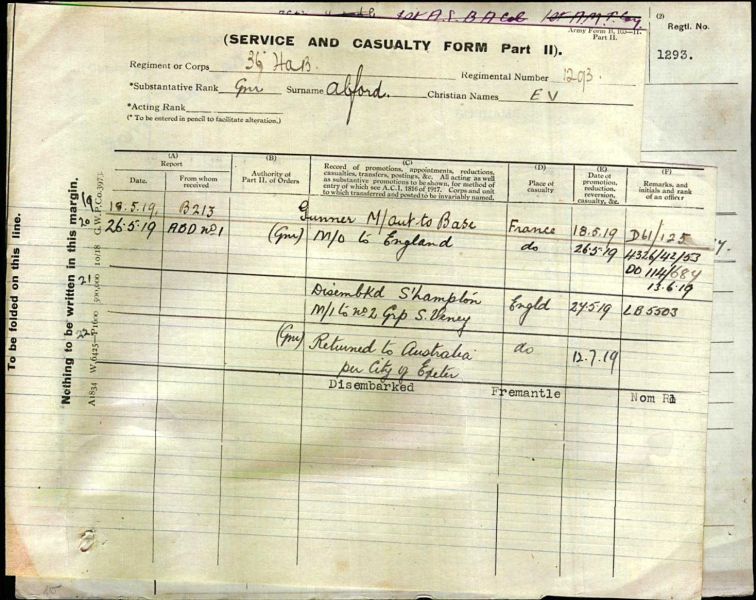 1st A.S.B.A.C. 1st A.M.T. Coy
Army Form B. 103—II.
Part II.
(2)
Regtl. No.
1293.
(SERVICE AND CASUALTY FORM Part II).
Regiment or Corps 36 HAB. Regimental Number 1293.
*Substantative Rank Gnr Surname Alford. Christian Names E V
*Acting Rank
(* To be entered in pencil to facilitate alteration.)
(A) Report
Date. From whom received
(B) Authority of Part II. of Orders
(C) Record of promotions, appointments, reductions, casualties, transfers, postings, &c. All acting as well as substantive promotions to be shown, for method of entry of which see A.C.I. 1816 of 1917. Corps and unit to which transferred and posted to be invariably named.
(D) Place of casualty
(E) Date of promotion, reduction, reversion, casualty, &c.
(F) Remarks, and initials and rank of an officer
19
18.5.19. B213 Gunner M/out to Base France 18.5.19 D61/125
20
26.5.19 ADD No 1 (Gnr) M/O to England do 26.5.19 4326/42/53
DO 114/684
13.6.19
21
Disembkd S'hampton Engld 27.5.19 LB5503
M/I to No 2 Grp S. Veney
22
(Gnr) Returned to Australia do 12.7.19
per City of Exeter
Disembarked Fremantle Nom Rl
To be folded on this line.
Nothing to be written in this margin.
A1834 W.6425—P1600 500,000 10/18 G.W.P.Co.3973.